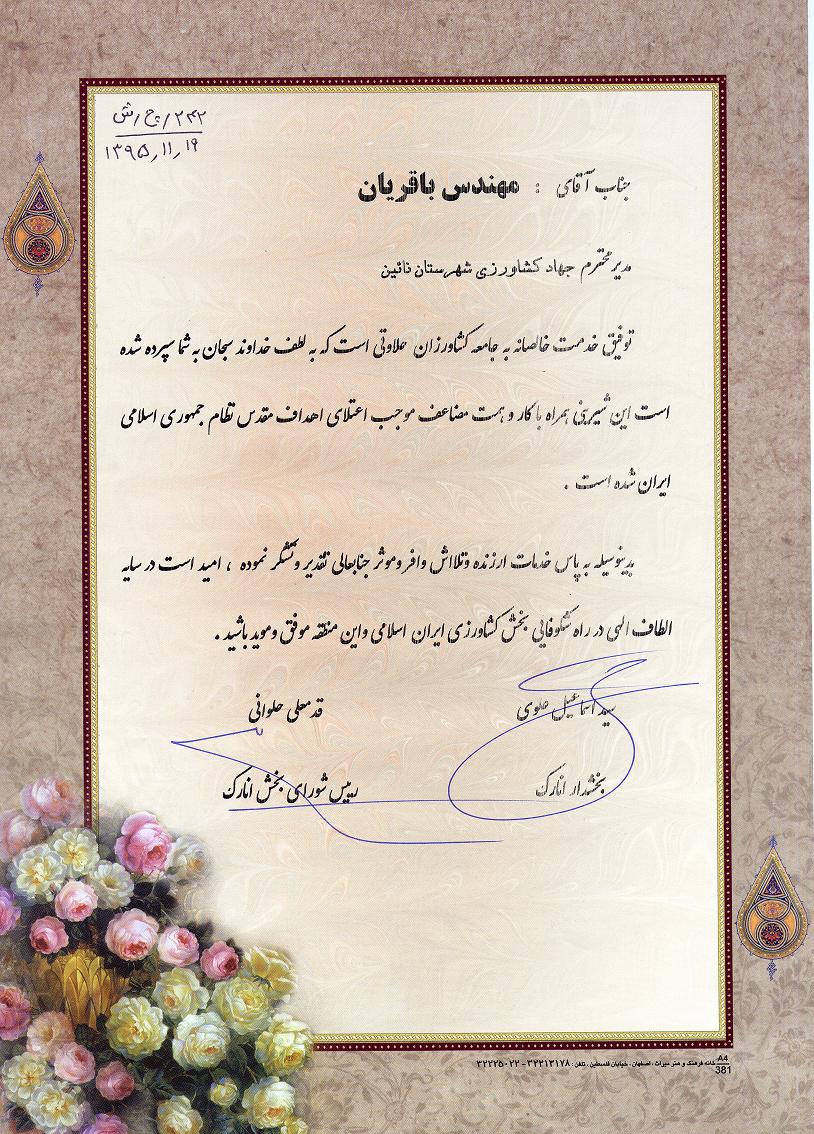 ۲۴۲/ح/ش
۱۳۹۵,۱۱,۱۹
جناب آقای : مهندس باقریان
مدیر محترم جهاد کشاورزی شهرستان نائین
توفیق خدمت خالصانه به جامعه کشاورزان حلاوتی است که به لطف خداوند سبحان به شما سپرده شده
است این شیرینی همراه با کار و همت مضاعف موجب اعتلای اهداف مقدس نظام جمهوری اسلامی
ایران شده است .
بدینوسیله به پاس خدمات ارزنده وتلااش وافر وموثر جنابعالی تقدیر وتشکر نموده ، امید است در سایه
الطاف الهی در راه شکوفایی بخش کشاورزی ایران اسلامی واین منطقه موفق وموید باشید .
سید اسماعیل علوی
قدمعلی حلوانی
بخشدار انارک
رییس شورای بخش انارک
A4
381
خانه فرهنگ و هنر میراث ، اصفهان ، خیابان فلسطین ، تلفن : ۳۲۲۱۳۱۷۸ - ۳۲۲۲۵۰۲۲